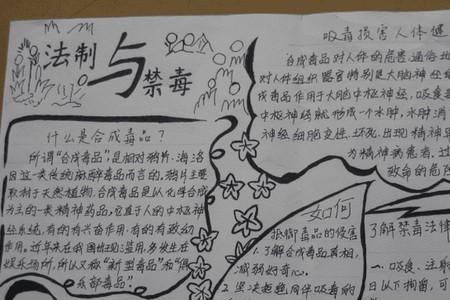 法制与禁毒
什么是合成毒品?
所谓"合成毒品",是相对鸦片.海洛
因这一类传统麻醉毒品而言的,鸦片主要
取材于天然植物,合成毒品是以化学合成
为主的一类精神药品,它直于人的中枢神
经系统,有的有兴奋作用,有的有致幻
作用.近年来在我国出现滥用,多发生在
娱乐场所,所以又称"新型毒品"和"俱
乐部毒品".
吸毒损害人体健
合成毒品对人体的危害通俗地
对人体组织器官特别是大脑神经
成毒品作用于大脑中枢神经,吸食
中枢神经就形成一个水肿,水肿消
神经细胞变性.坏死,出现精神异
为精神病患者.过
致命的危险
如何
抵御毒品的侵害
1.了解合成毒品真相,
减弱好奇心.
2.坚决拒绝同伴吸毒的
了解禁毒法律
一.吸食、注射
日以下拘留,可